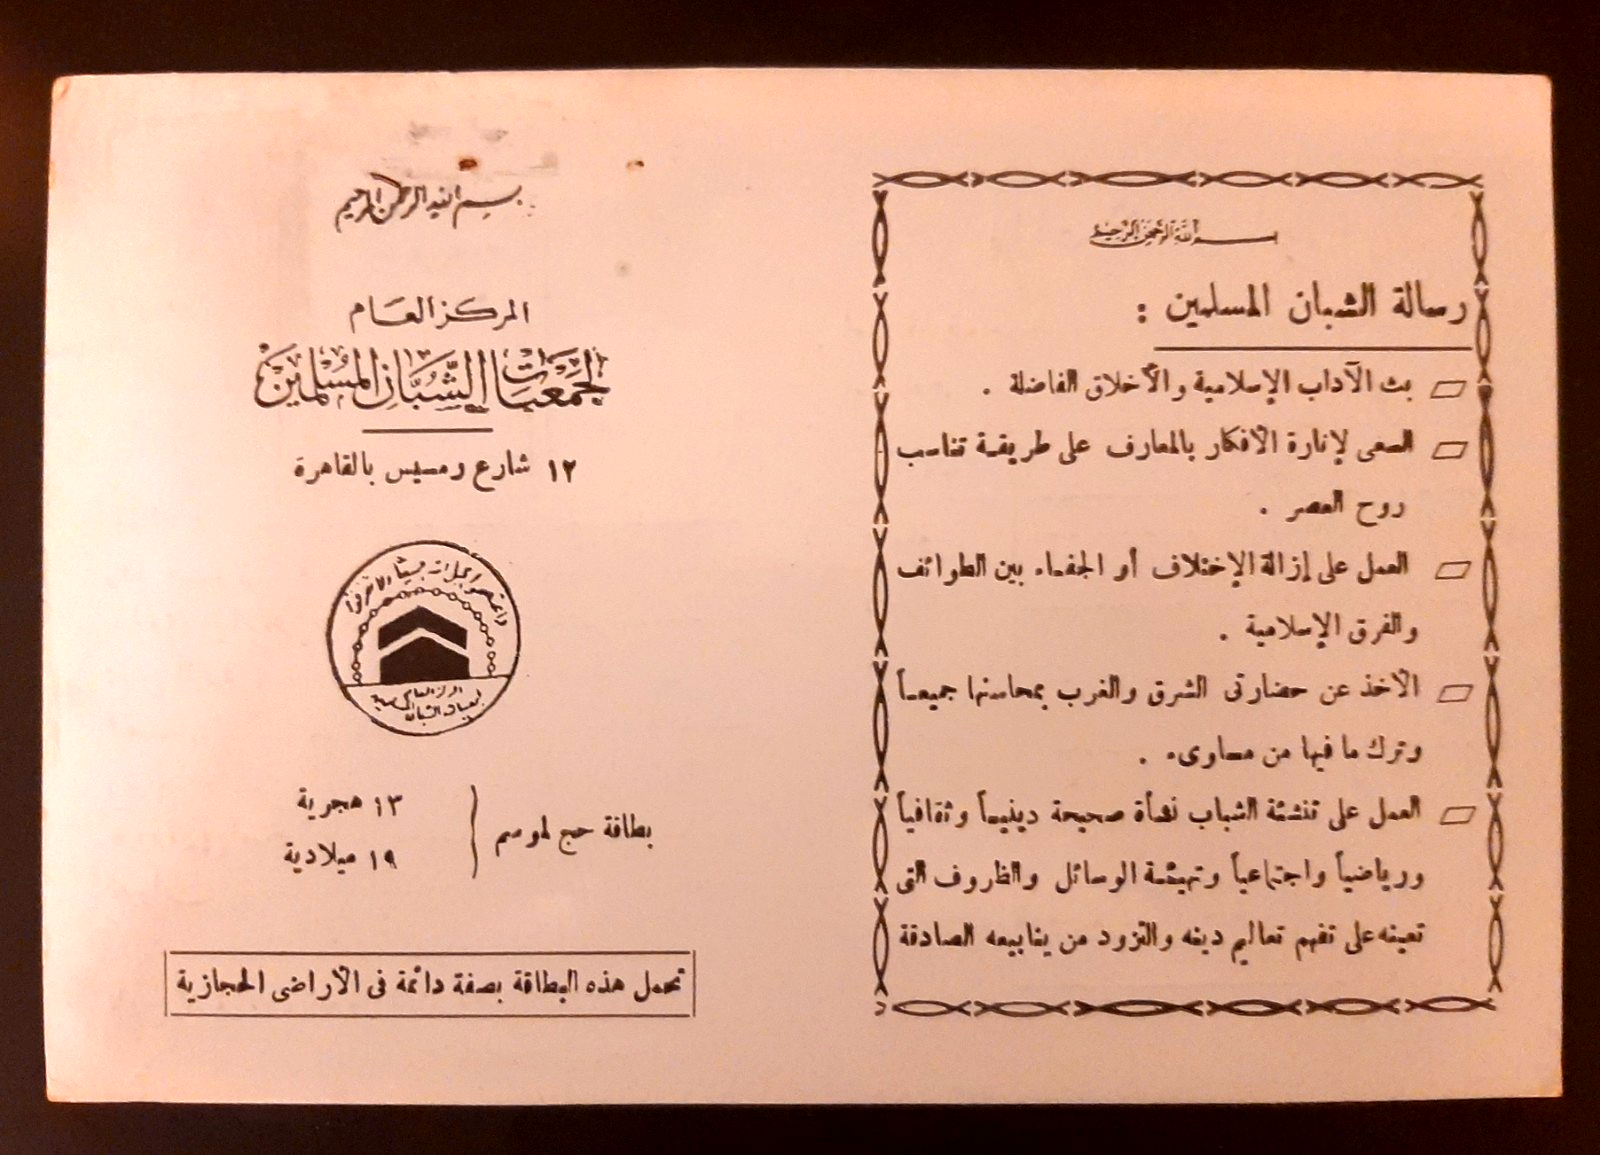 بسم الله الرحمن الرحيم
رسالة الشبان المسلمين :
بث الآداب الإسلامية والأخلاق الفاضلة .
السعى لإنارة الأفكار بالمعارف على طريقة تناسب
روح العصر .
العمل على إزالة الإختلاف أو الجفاء بين الطوائف
والفرق الإسلامية .
الأخذ عن حضارتى الشرق والغرب بمحاسنها جميعاً
وترك ما فيها من مساوىء .
العمل على تنشئة الشباب نشأة صحيحة دينياً وثقافياً
ورياضياً واجتماعياً وتهيئة الوسائل والظروف التى
تعينه على تفهم تعاليم دينه والتزود من ينابيعه الصادقة
بسم الله الرحمن الرحيم
المركز العام
لجمعيات الشبان المسلمين
١٢ شارع رمسيس بالقاهرة
واعتصموا بحبل الله جميعا ولا تفرقوا
المركز العام
لجمعيات الشبان
بطاقة حج لموسم
١٣ هجرية
١٩ ميلادية
تحمل هذه البطاقة بصفة دائمة فى الأراضى الحجازية